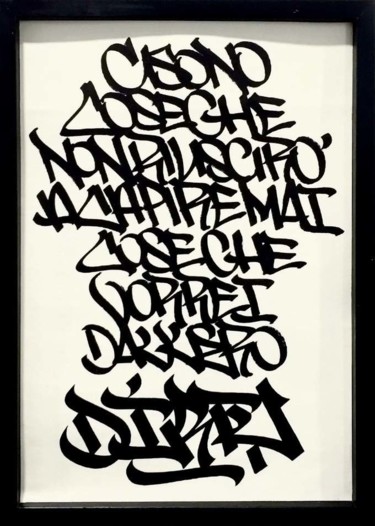 CI SONO
COSE CHE
NON RIUSCIRO'
A CAPIRE MAI
COSE CHE
VORREI
DAVVERO
DIRTI